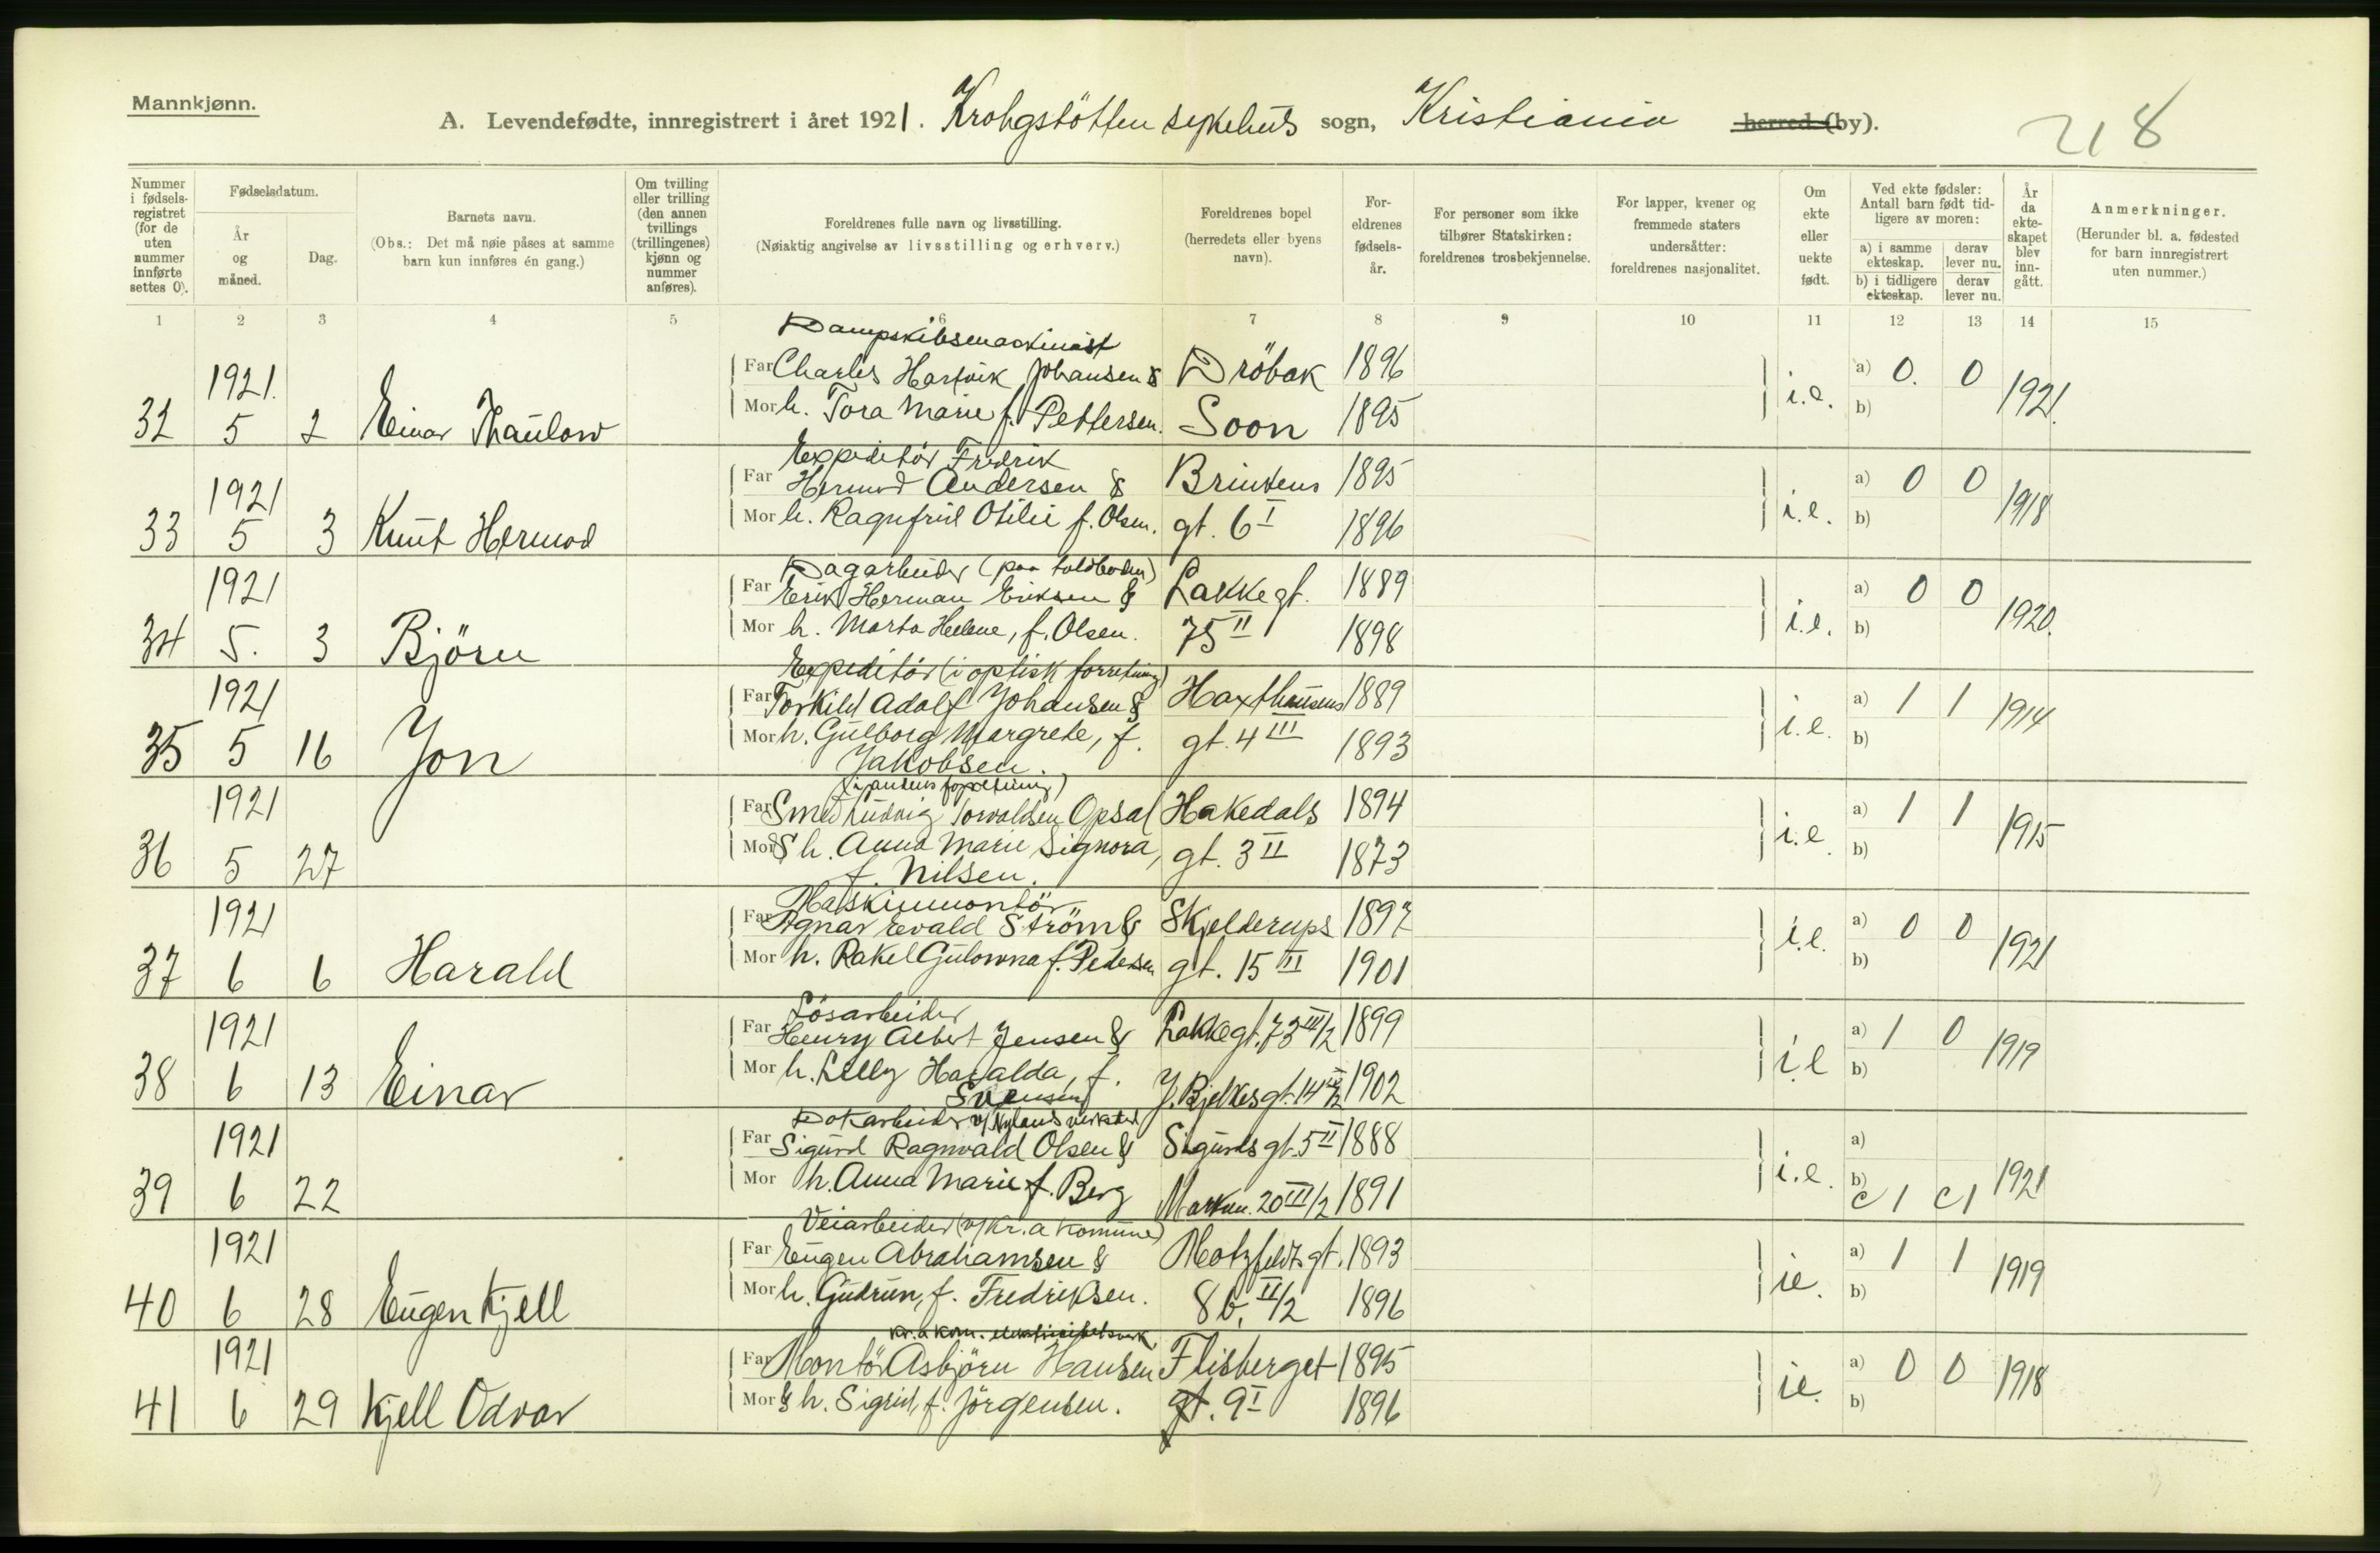 Mannkjønn.
A. Levendefødte, innregistrert i året 1921. Krohgstötten sykehus sogn, Kristiania herred (by).
218
Nummer i fødsels-registret (for de uten nummer innførte settes 0).
Fødselsdatum.
År og måned.
Dag.
Barnets navn.
(Obs.: Det må nøie påses at samme barn kun innføres én gang.)
Om tvilling eller trilling (den annen tvillings (trillingenes) kjønn og nummer anføres).
Foreldrenes fulle navn og livsstilling.
(Nøiaktig angivelse av livsstilling og erhverv.)
Foreldrenes bopel (herredets eller byens navn).
For-eldrenes fødsels-år.
For personer som ikke tilhører Statskirken: foreldrenes trosbekjennelse.
For lapper, kvener og fremmede staters undersåtter: foreldrenes nasjonalitet.
Om ekte eller uekte født.
Ved ekte fødsler: Antall barn født tid-ligere av moren:
a) i samme ekteskap.
derav lever nu.
b) i tidligere ekteskap.
derav lever nu.
År da ekte-skapet blev inn-gått.
Anmerkninger.
(Herunder bl. a. fødested for barn innregistrert uten nummer.)
1 2 3 4 5 6 7 8 9 10 11 12 13 14 15
Dampskibsmaskinist
1921. Far Charles Hartvik Johansen & Dröbak 1896 a) 0. 0
32 5 2 Einar Thaulow Mor h. Tora Marie f. Pettersen. Soon 1895 i.e. b) 1921.
Expeditör Fredrik
1921 Far Hermod Andersen & Brinkens 1895 a) 0 0
33 5 3 Knut Hermod Mor h. Ragnfrid Otilie f. Olsen. gt. 6 I 1896 i.e. b) 1918
Dagarbeider (paa toldboden)
1921 Far Erik Herman Eriksen & Lakkegt. 1889 a) 0 0
34 5. 3 Björn Mor h. Marta Helene, f. Olsen. 75 II 1898 i.e. b) 1920.
Expeditör (i optisk forretning)
1921 Far Torkild Adolf Johansen & Haxthausens 1889 a) 1 1
35 5 16 Jon Mor h. Gulborg Margrete, f. gt. 4 III 1893 i.e. b) 1914
Jakobsen.
1921 Far Smed Ludvig Torvaldsen Opsal Hakedals 1894 a) 1 1
36 5 27 Mor & h. Anna Marie Signora, gt. 3 II 1873 i.e. b) 1915
f. Nilsen.
Maskinmontör
1921 Far Agnar Evald Ström & Skjelderups 1897 a) 0 0
37 6 6 Harald Mor h. Rakel Gulowna f. Pedersen gt. 15 III 1901 i.e. b) 1921
Lösarbeider
1921 Far Henry Albert Jensen & Lakkegt. 73 III/2 1899 a) 1 0
38 6 13 Einar Mor h. Lelly Haralda, f. J. Bjelkesgt. 14 1902 i.e b) 1919
Svensen
Dokarbeider v/ Nylands verksted
1921 Far Sigurd Ragnvald Olsen & Sigurds gt. 5 II 1888 a)
39 6 22 Mor h. Anna Marie f. Berg Markvn. 20 III/2 1891 i.e. b) c 1 c 1 1921
Veiarbeider (v/ Kr.a Kommune)
1921 Far Eugen Abrahamsen & Motzfeldts gt. 1893 a) 1 1
40 6 28 Eugen Kjell Mor h. Gudrun, f. Fredriksen. 8 b, II/2 1896 ie. b) 1919
Kr.a kom. elektricitetsverk
1921 Far Montör Asbjörn Hansen Flisberget 1895 a) 0 0
41 6 29 Kjell Odvar Mor & h. Sigrid, f. Jörgensen. gt. 9 I 1896 ie. b) 1918